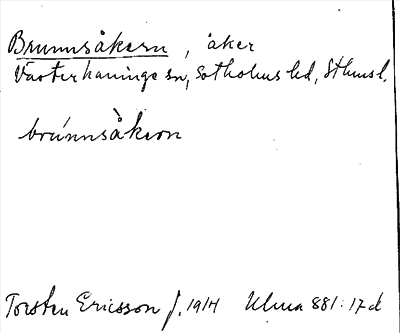 Brunnsåkern, åker
Västerhaninge sn, Sotholms hd, Sthmsl.
brúnnså̀kern
Torsten Ericsson f. 1914 Ulma 881:17d